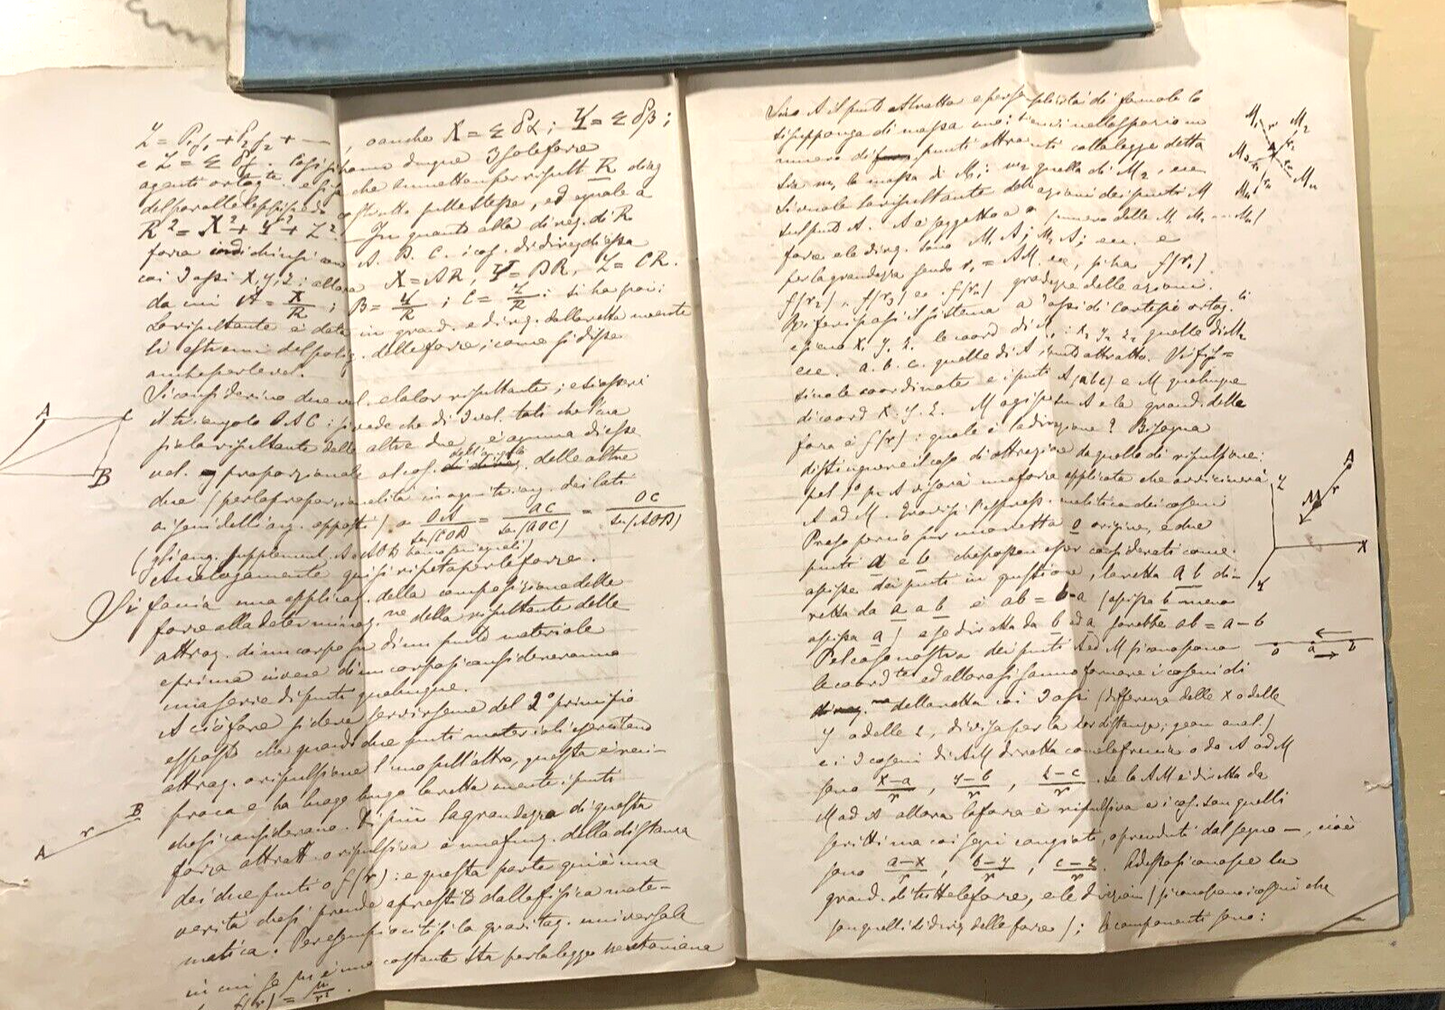 Z = P₁γ₁ + P₂γ₂ + — , o anche X = Σ Pα ; Y = Σ Pβ ;
e Z = Σ Pγ. Così si hanno dunque 3 sole forze
agenti ortog.te e si sa che ammettono per risult. R diag.
del parallelepipedo costrutto sulle stesse, ed eguale a
R² = X² + Y² + Z². In quanto alla direz. di R
A. B. C. i cos. di direz. di essa
coi 3 assi x, y, z; allora X = AR, Y = BR, Z = CR.
da cui A = X/R ; B = Y/R ; C = Z/R : si ha poi:
La risultante è data in grand. e direz. dalla retta unente
gli estremi del polig. delle forze, come si disse
anche per le vel.
Si considerino due vel. e la lor risultante ; e si osservi
il triangolo OAC : si vede che di 3 vel. tali che l'una
sia la risultante delle altre due, è ognuna di esse
vel. proporzionale al dell'angolo delle altre
due (per la proporzionalità in ogni triang. dei lati
ai seni degli ang. opposti), o OA/sen(COB) = AC/sen(AOC) = OC/sen(AOB)
(gli ang. supplement. A e AOB hanno seni eguali)
Analogamente quasi si ripeta per le forze.
Si faccia una applicaz. della composizione delle
forze alla determinaz.ne della risultante delle
attraz. di un corpo su di un punto materiale
e prima invece di un corpo si considereranno
una serie di punti qualunque.
A ciò fare si deve servirsene del 2° principio
esposto che quando due punti materiali esercitano
attraz. o ripulsione l'uno sull'altro, questa è reci-
proca e ha luogo lungo la retta unente i punti
che si considerano. Di più la grandezza di questa
forza attratt. o ripulsiva è una funz. della distanza
dei due punti o f(r) : e questa parte qui è una
verità che si prende a prestito dalla fisica mate-
matica. Per esempio citisi la gravitaz. universale
in cui se μ è una costante sta per la legge newtoniana
f(r) = μ/r².
A C
B
A r B
Sia A il punto attratto e per semplicità di formole lo
si supponga di massa uno : siano nello spazio un
numero di punti attraenti colla legge detta
Sia m₁ la massa di M₁ ; m₂ quella di M₂ , ecc.
Si vuole la risultante delle azioni dei punti M
sul punto A. A è soggetto a n (numero delle M₁ M₂ ... Mₙ)
forze e le direz. sono M₁A ; M₂A ; ecc. e
per la grandezza sendo r₁ = AM₁ ecc., si ha f(r₁)
f(r₂) , f(r₃) ec. f(rₙ) grandezze delle azioni.
Riferiscasi il sistema a 3 assi di cartesio ortog.li
e sieno x₁ y₁ z₁ le coord di M₁ : x₂ y₂ z₂ quelle di M₂
ecc. a. b. c. quelle di A punto attratto.
sino le coordinate e i punti A (abc) e M qualunque
di coord x. y. z. M agisce su A e la grand. della
forza è f(r) : quale è la direzione ? Bisogna
distinguere il caso di attrazione da quello di ripulsione :
pel 1° su A vi sarà una forza applicata che avvicinerà
A ad M.
Preso perciò su una retta o origine, e due
punti a e b che possono esser considerati come
ascisse dei punti in questione, la retta ab di-
retta da a a b è ab = b-a (ascissa b meno
ascissa a) e se diretta da b ad a sarebbe ab = a-b
Pel caso nostro dei punti A ed M si conoscono
le coord.te ed allora si sanno formare i coseni di
direz.ne della retta coi 3 assi (differenza delle x o delle
y o delle z, divisa per la lor distanza ; geom anal.)
e i 3 coseni di AM diretta come la freccia o da A ad M
sono x-a/r , y-b/r , z-c/r . Se la AM è diretta da
M ad A allora la forza è ripulsiva e i cos. son quelli
scritti ma coi segni cangiati, o preceduti dal segno — , cioè
sono a-x/r , b-y/r , c-z/r . Adesso si conosce la
grand. di tutte le forze, e le direzioni (si conoscono i coseni che
son quelli di direz. delle forze) ; le componenti sono :
M₁ M₂
M₃
Mₙ
A
M
r
z
x
y
o a b